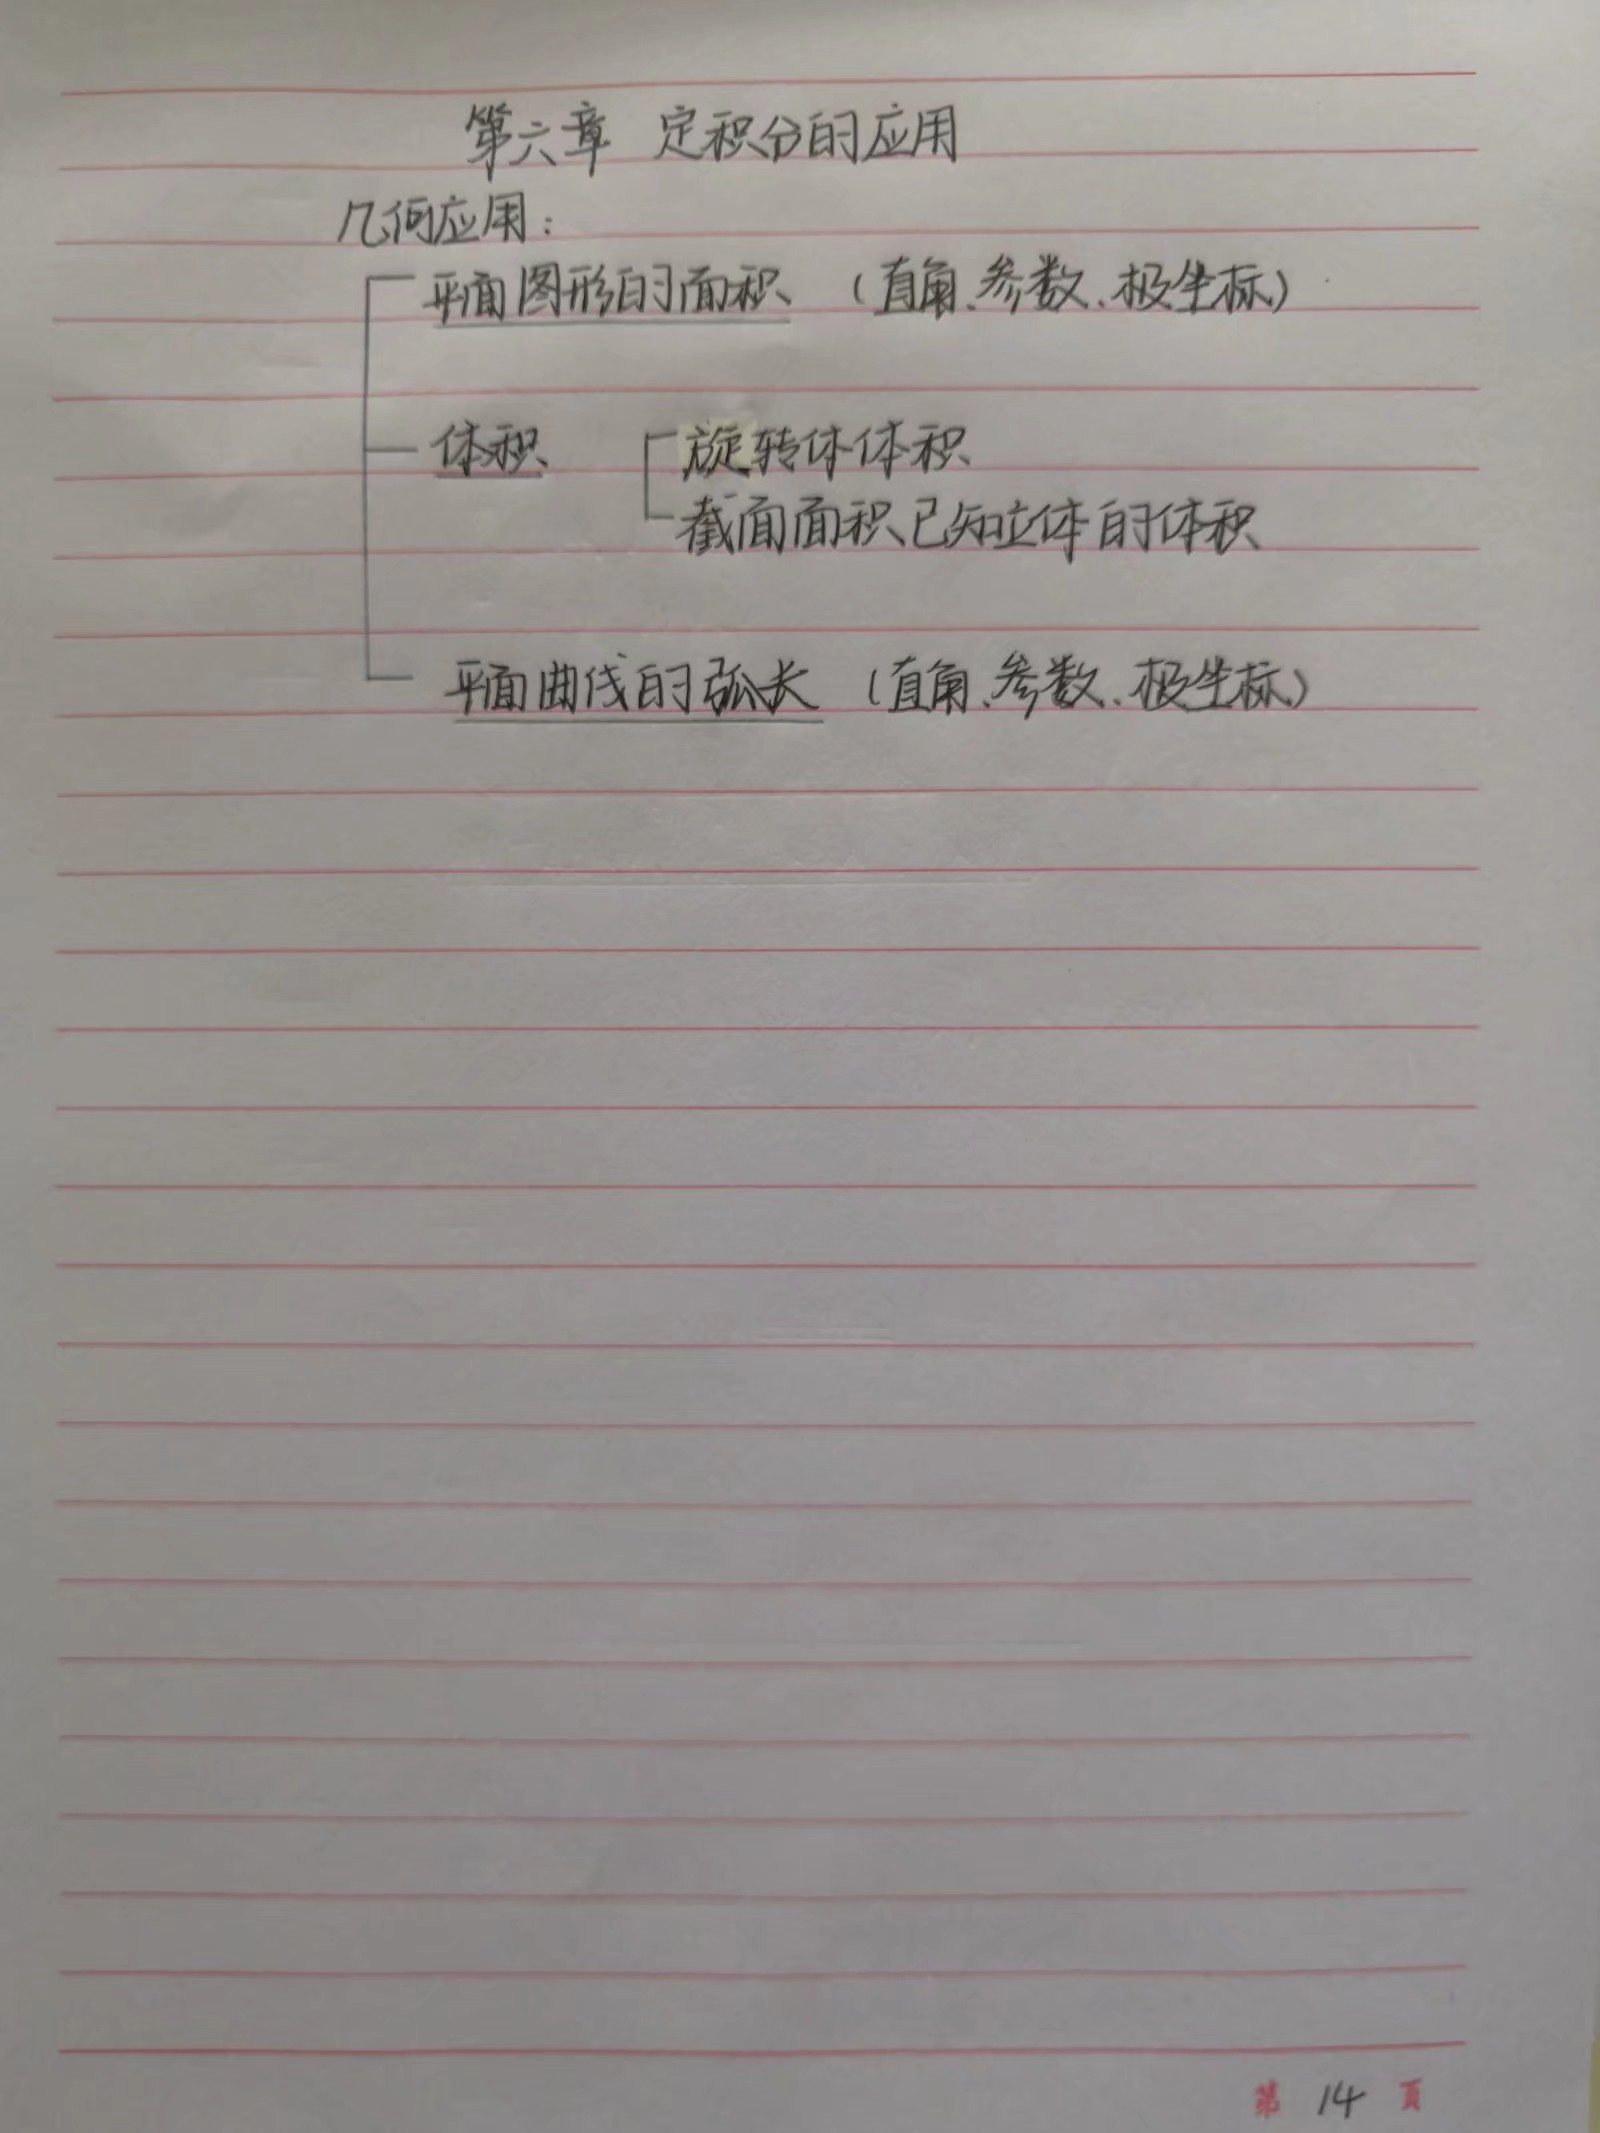 第六章 定积分的应用
几何应用：
平面图形的面积 （直角、参数、极坐标）
体积 旋转体体积
截面面积已知立体的体积
平面曲线的弧长 （直角、参数、极坐标）
第 14 頁